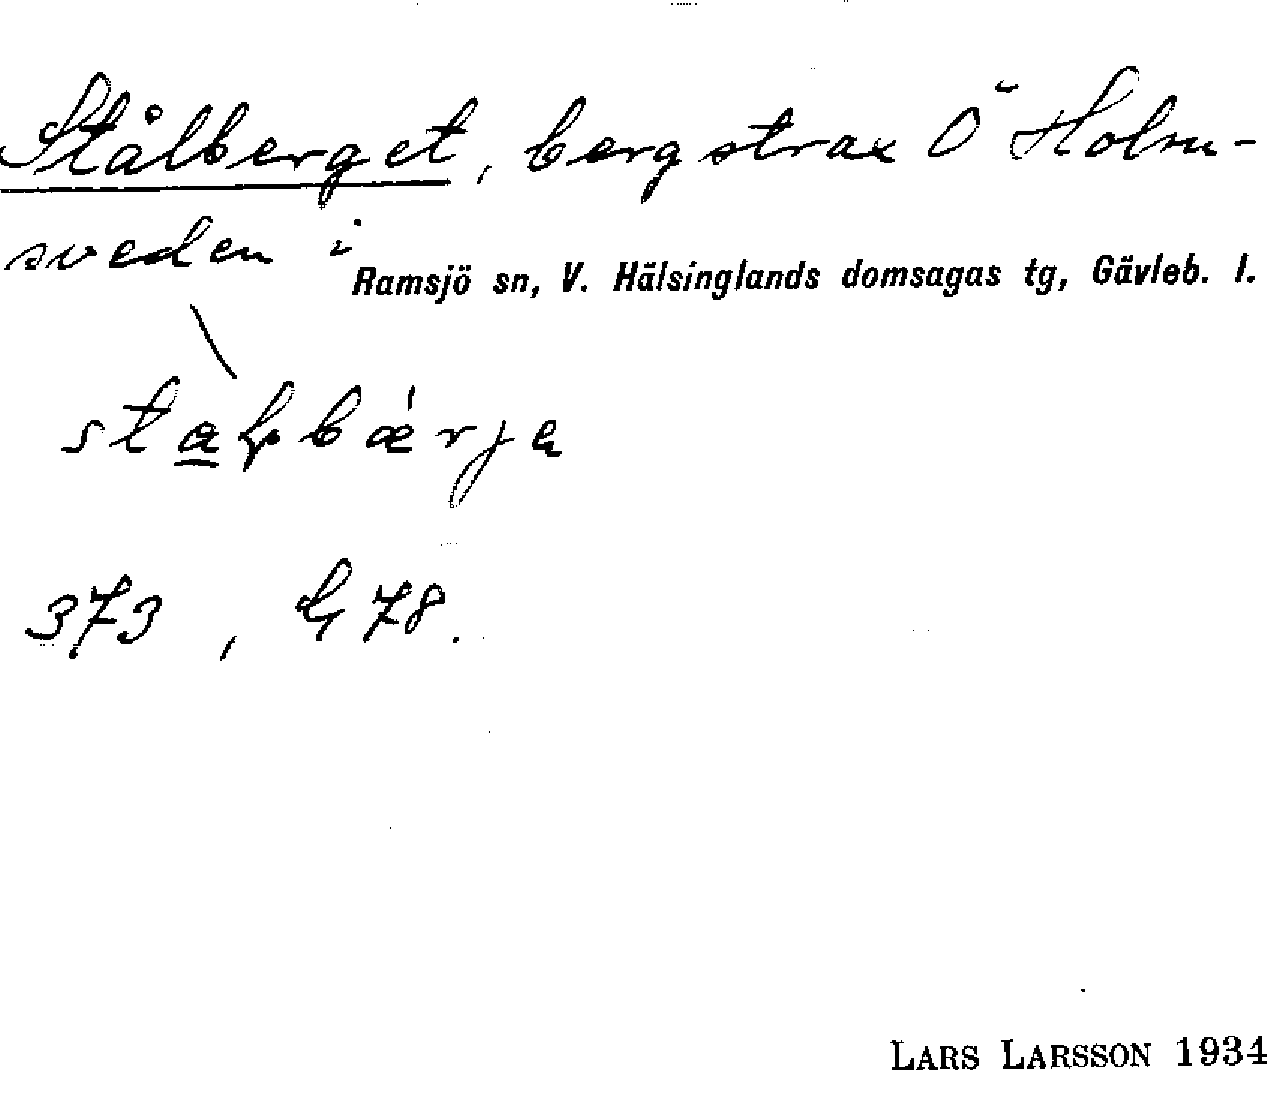 Stålberget, berg strax Ö Holm-
sveden i
Ramsjö sn, V. Hälsinglands domsagas tg, Gävleb. l.
373, G 78.
LARS LARSSON 1934